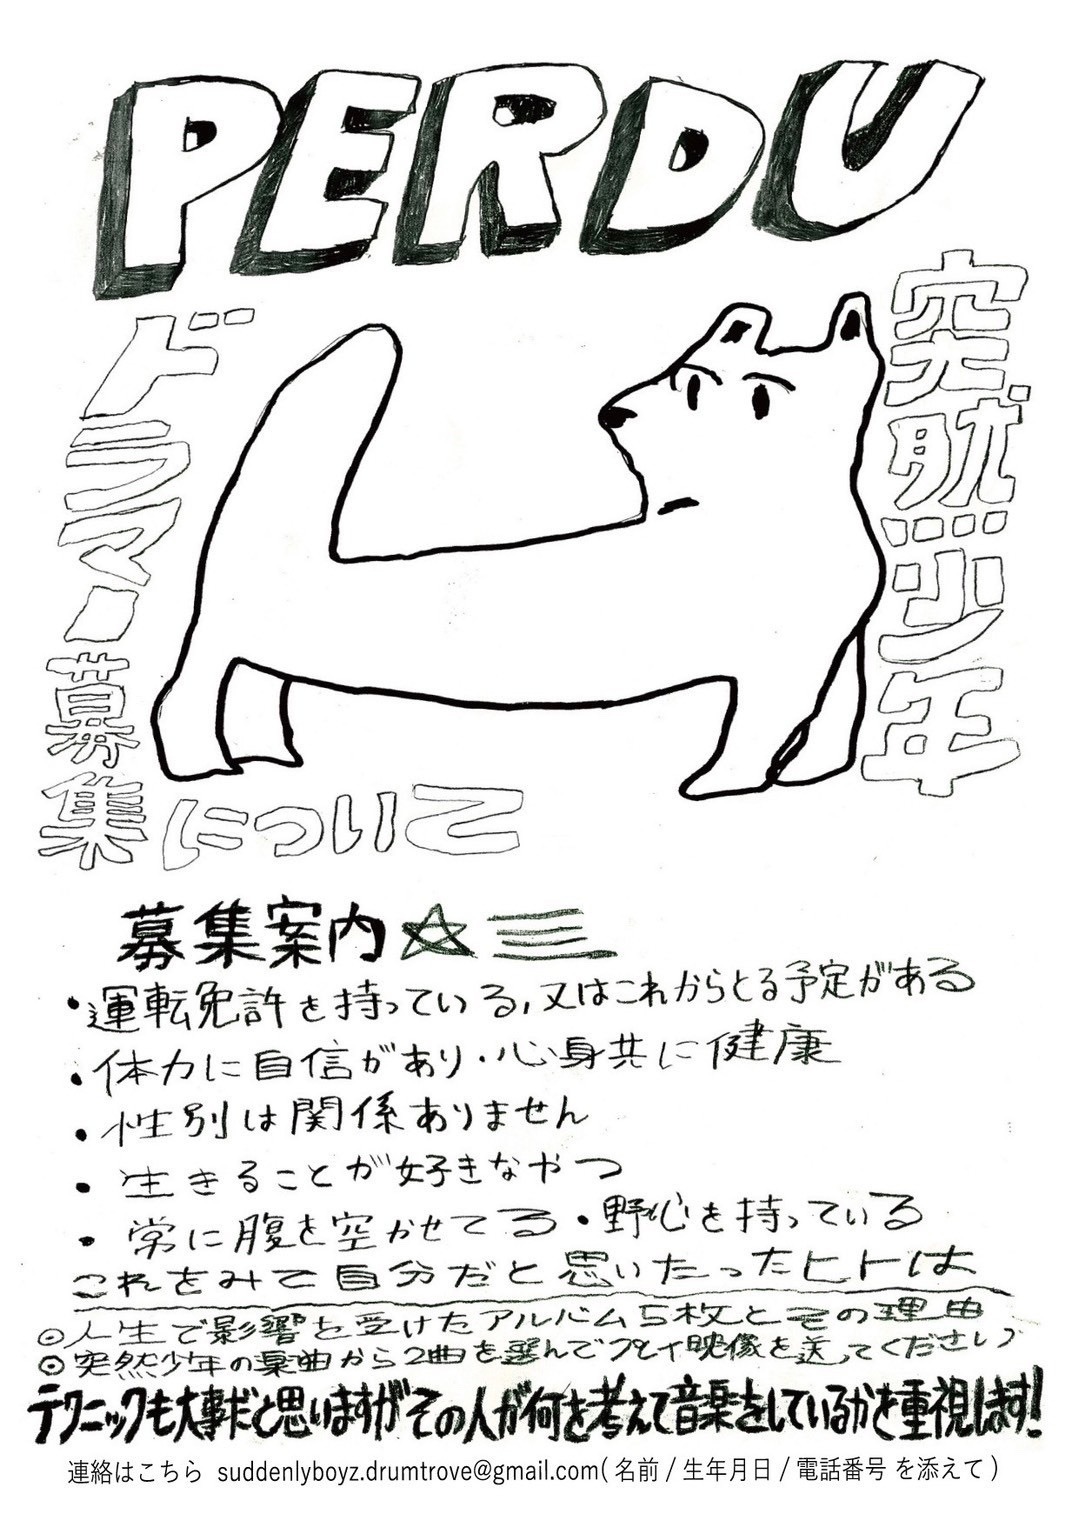 PERDU
突然少年
ドラマー募集について
募集案内☆三
・運転免許を持っている,又はこれからとる予定がある
・体力に自信があり・心身共に健康
・性別は関係ありません
・生きることが好きなやつ
・常に腹を空かせてる・野心を持っている
これをみて自分だと思いたったヒトは
◎人生で影響を受けたアルバム5枚とその理由
◎突然少年の楽曲から2曲を選んでプレイ映像を送ってください♪
テクニックも大事だと思いますがその人が何を考えて音楽をしているかを重視します!
連絡はこちら suddenlyboyz.drumtrove@gmail.com(名前 / 生年月日 / 電話番号 を添えて)